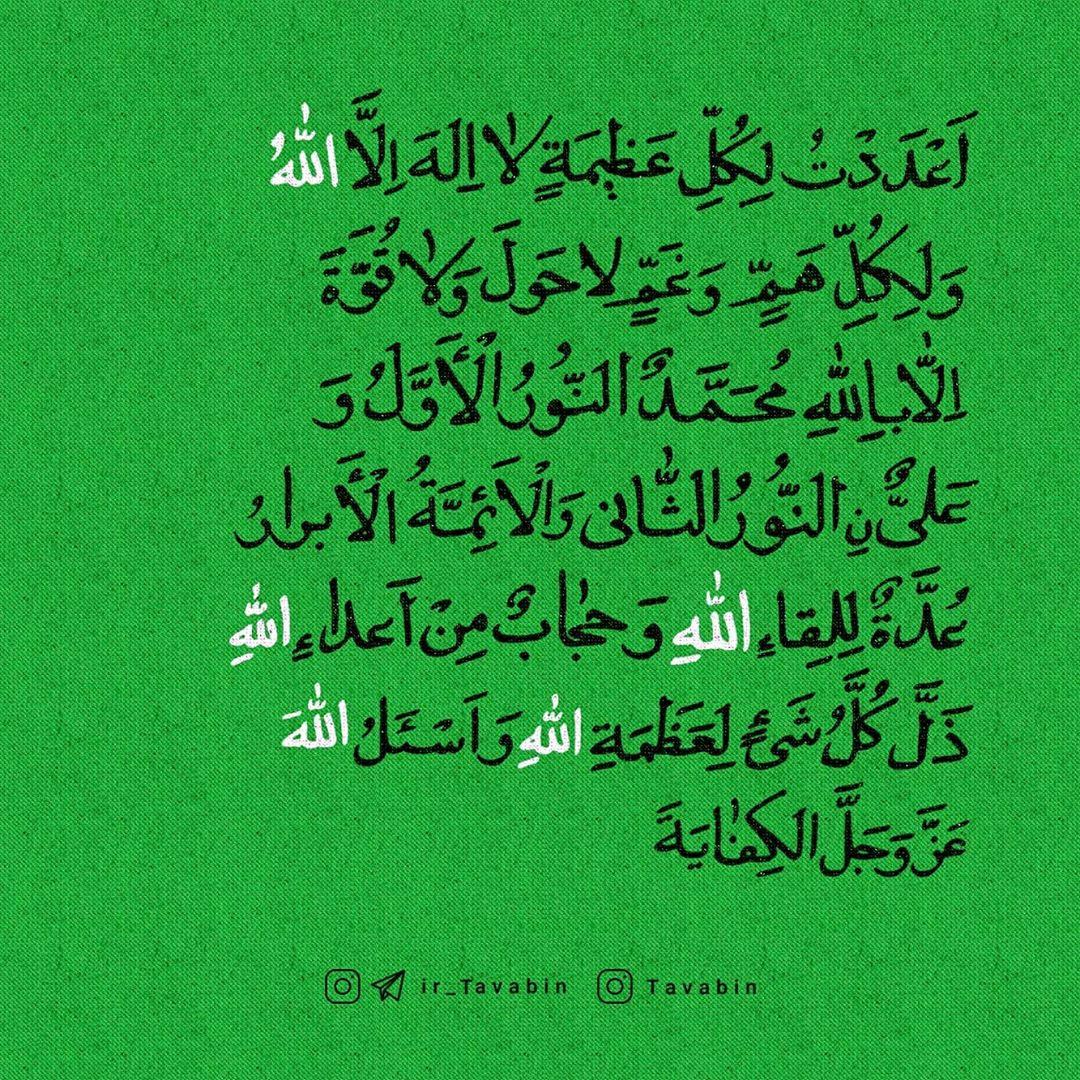 اَعْدَدْتُ لِكُلِّ عَظِيمَةٍ لاٰ اِلَهَ اِلَّا اللّٰهُ
وَلِكُلِّ هَمٍّ وَغَمٍّ لاحَولَ وَلاٰ قُوَّةَ
اِلّٰا بِاللّٰهِ مُحَمَّدٌ النّوُرُ الْأَوَّلُ وَ
عَلىٌّ نِ النّوُرُ الثّٰانى وَالْاَئِمَّةُ الْأَبرارُ
عُدَّةٌ لِلِقاءِ اللّٰهِ وَ حِجٰابٌ مِنْ اَعداءِ اللّٰهِ
ذَلَّ كُلُّ شَئٍ لِعَظَمَةِ اللّٰهِ وَ اَسْئَلُ اللّٰهَ
عَزَّ وَجَلَّ الكِفٰايَةَ
ir_Tavabin Tavabin